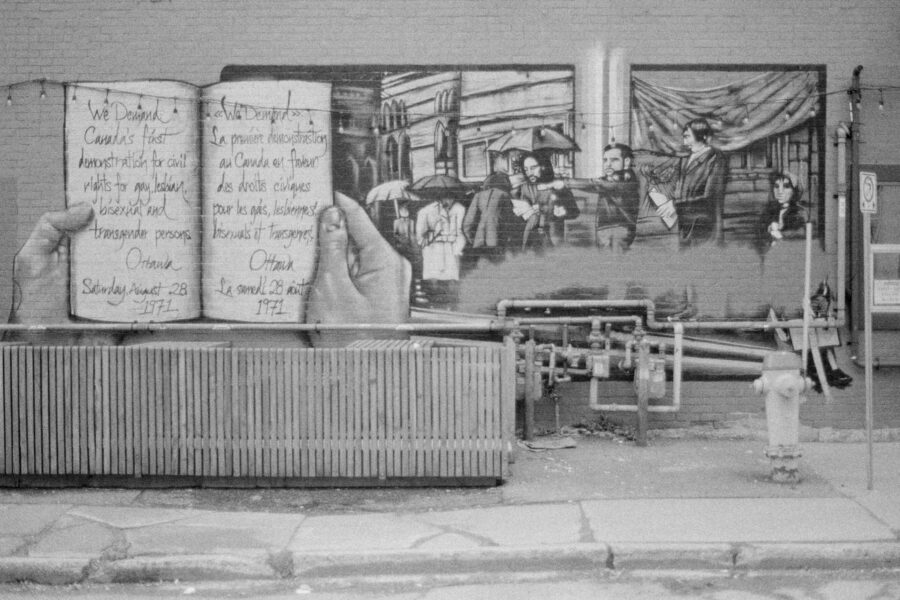 We Demand
Canada's first
demonstration for civil
rights for gay, lesbian,
bisexual and
transgender persons
Ottawa
Saturday August 28
1971
«We Demand»
La première demonstration
au Canada en faveur
des droits civiques
pour les gais, lesbiennes
bisexuels et transgenres
Ottawa
Le samedi 28 août
1971